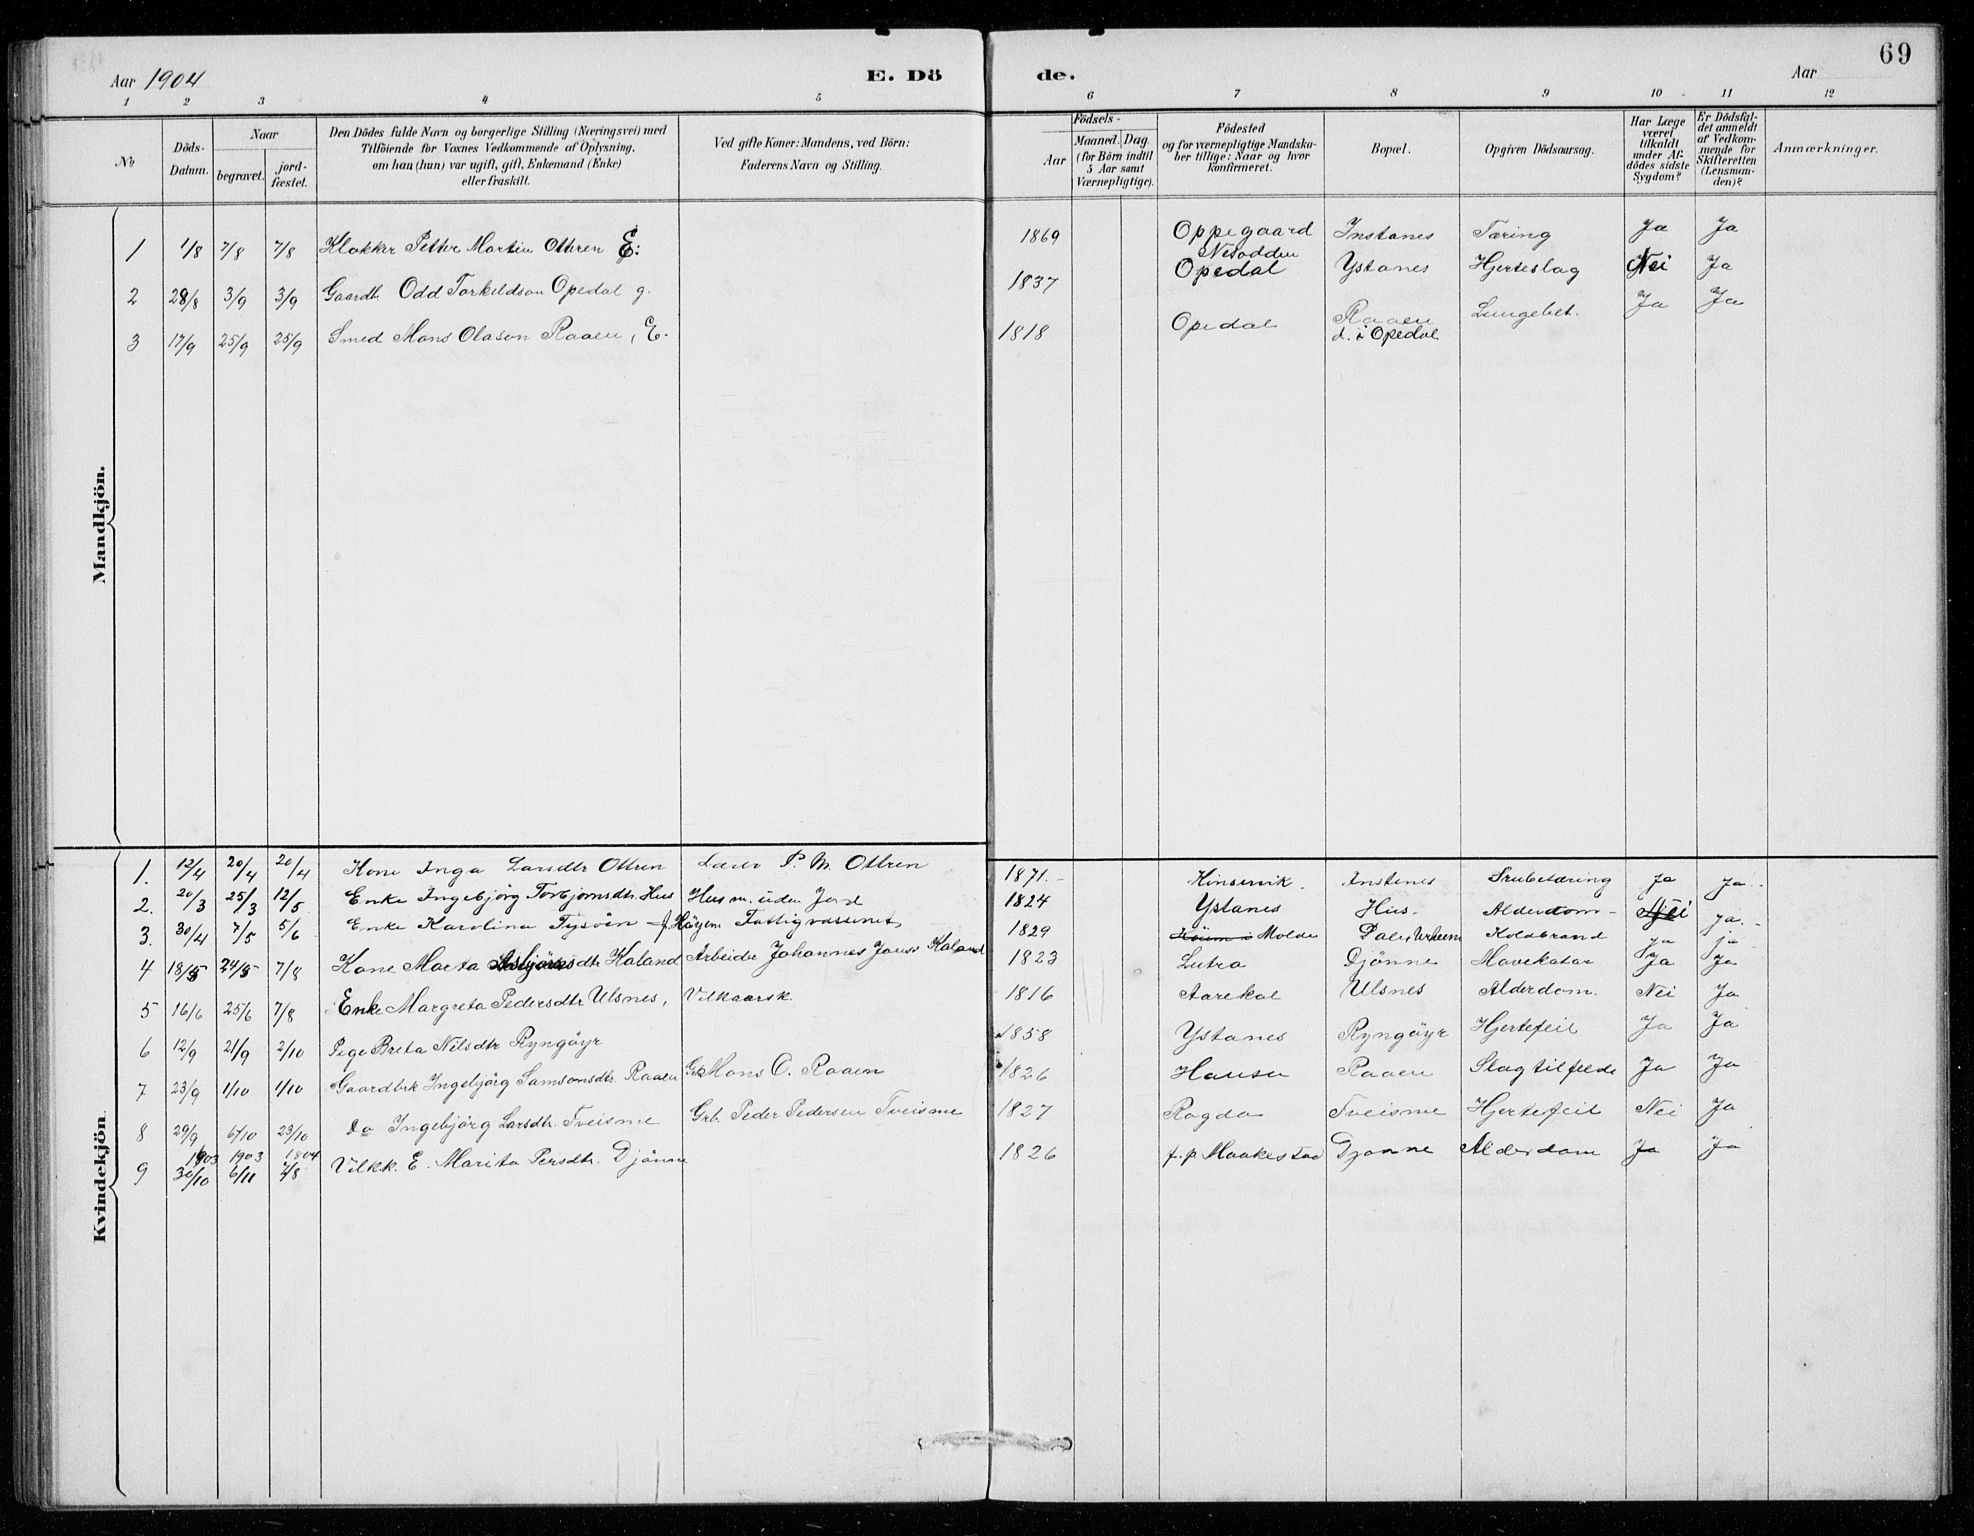 69
Aar 1904 E. Dö de. Aar
1 2 3 4 5 6 7 8 9 10 11 12
No
Döds-Datum.
Naar
begravet.
jord-fæstet.
Den Dödes fulde Navn og borgerlige Stilling (Næringsvei) med
Tilföiende for Voxnes Vedkommende af Oplysning,
om han (hun) var ugift, gift, Enkemand (Enke)
eller fraskilt.
Ved gifte Koner: Mandens, ved Börn:
Faderens Navn og Stilling.
Födsels-
Aar
Maaned. Dag.
(for Börn indtil
5 Aar samt
Værnepligtige).
Födested
og for værnepligtige Mandska-
ber tillige: Naar og hvor
konfirmeret.
Bopæl.
Opgiven Dödsaarsag.
Har Læge
været
tilkaldt
under Af-
dödes sidste
Sygdom?
Er Dödsfal-
det anmeldt
af Vedkom-
mende for
Skifteretten
(Lensman-
den)?
Anmærkninger.
Mandkjön.
1 1/8 7/8 7/8 Klokker Petter Martin Ottren E: 1869 Oppegaard Nesodden Instanes Tæring Ja Ja
2 28/8 3/9 3/9 Gaardb. Odd Torkildson Opedal g. 1837 Opedal Ystanes Hjerteslag Nei Ja
3 17/9 25/9 25/9 Smed Mons Olason Raaen, E. 1818 Opedal Raaen d. i Opedal Lungebet. Ja Ja
Kvindekjön
1. 12/4 20/4 20/4 Kone Inga Larsdtr Ottren Lærer P. M. Ottren 1871. Kinservik. Instenes Strubetæring Ja Ja.
2. 20/3 25/3 12/5 Enke Ingebjörg Torbjornsdtr. Hus Husm. uden Jord 1824 Ystanes Hus. Alderdom Nei Ja.
3. 30/4 7/5 5/6 Enke Karolina Tysvön f. Höyem Fattigvæsenet 1829 Molde Koldbrand Ja ja
4 18/5 24/5 7/8 Kone Marta Asbjörnsdtr Haland Arbeider Johannes Jansv Haland 1823 Lutro Djönne Mavekatar Ja Ja
5 16/6 25/6 7/8 Enke Margreta Pedersdtr Ulsnes, Vilkaarsk. 1816 Aarekol Ulsnes Alderdom. Nei Ja
6 12/9 21/9 2/10 Pige Breta Nilsdtr Ryngöyr 1858 Ystanes Ryngöyr Hjertefeil Ja Ja
7 23/9 1/10 1/10 Gaardbrk Ingebjörg Samsonsdtr. Raaen Grb Mons O. Raaen 1826 Hausa Raaen Slagtilfelde Ja Ja
8 29/9 6/10 23/10 do Ingebjörg Larsdtr. Tveisme Grb. Peder Pedersen Tveisme 1827 Ragda Tveisme Hjertefeil Nei Ja
1903 1903 1804
9 30/10 6/11 7/8 Vilkk. E. Marita Persdtr. Djönne 1826 f. p. Maakestad Djonne Alderdom Ja Ja